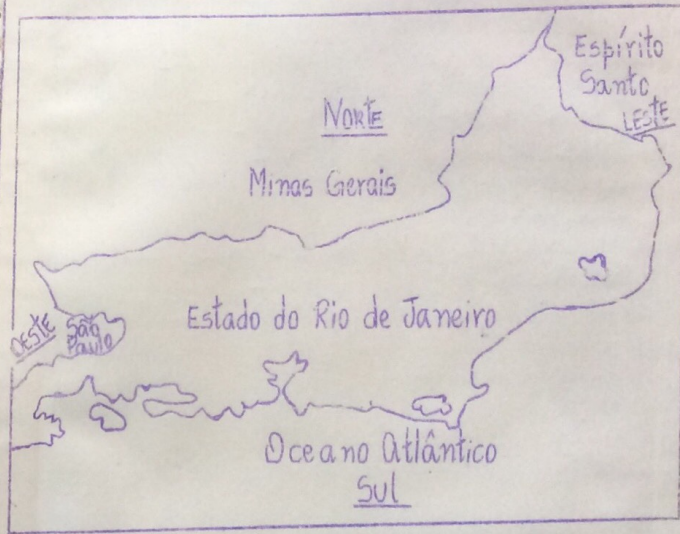 Espírito
Santo
LESTE
NORTE
Minas Gerais
Estado do Rio de Janeiro
OESTE
São
Paulo
Oceano Atlântico
Sul